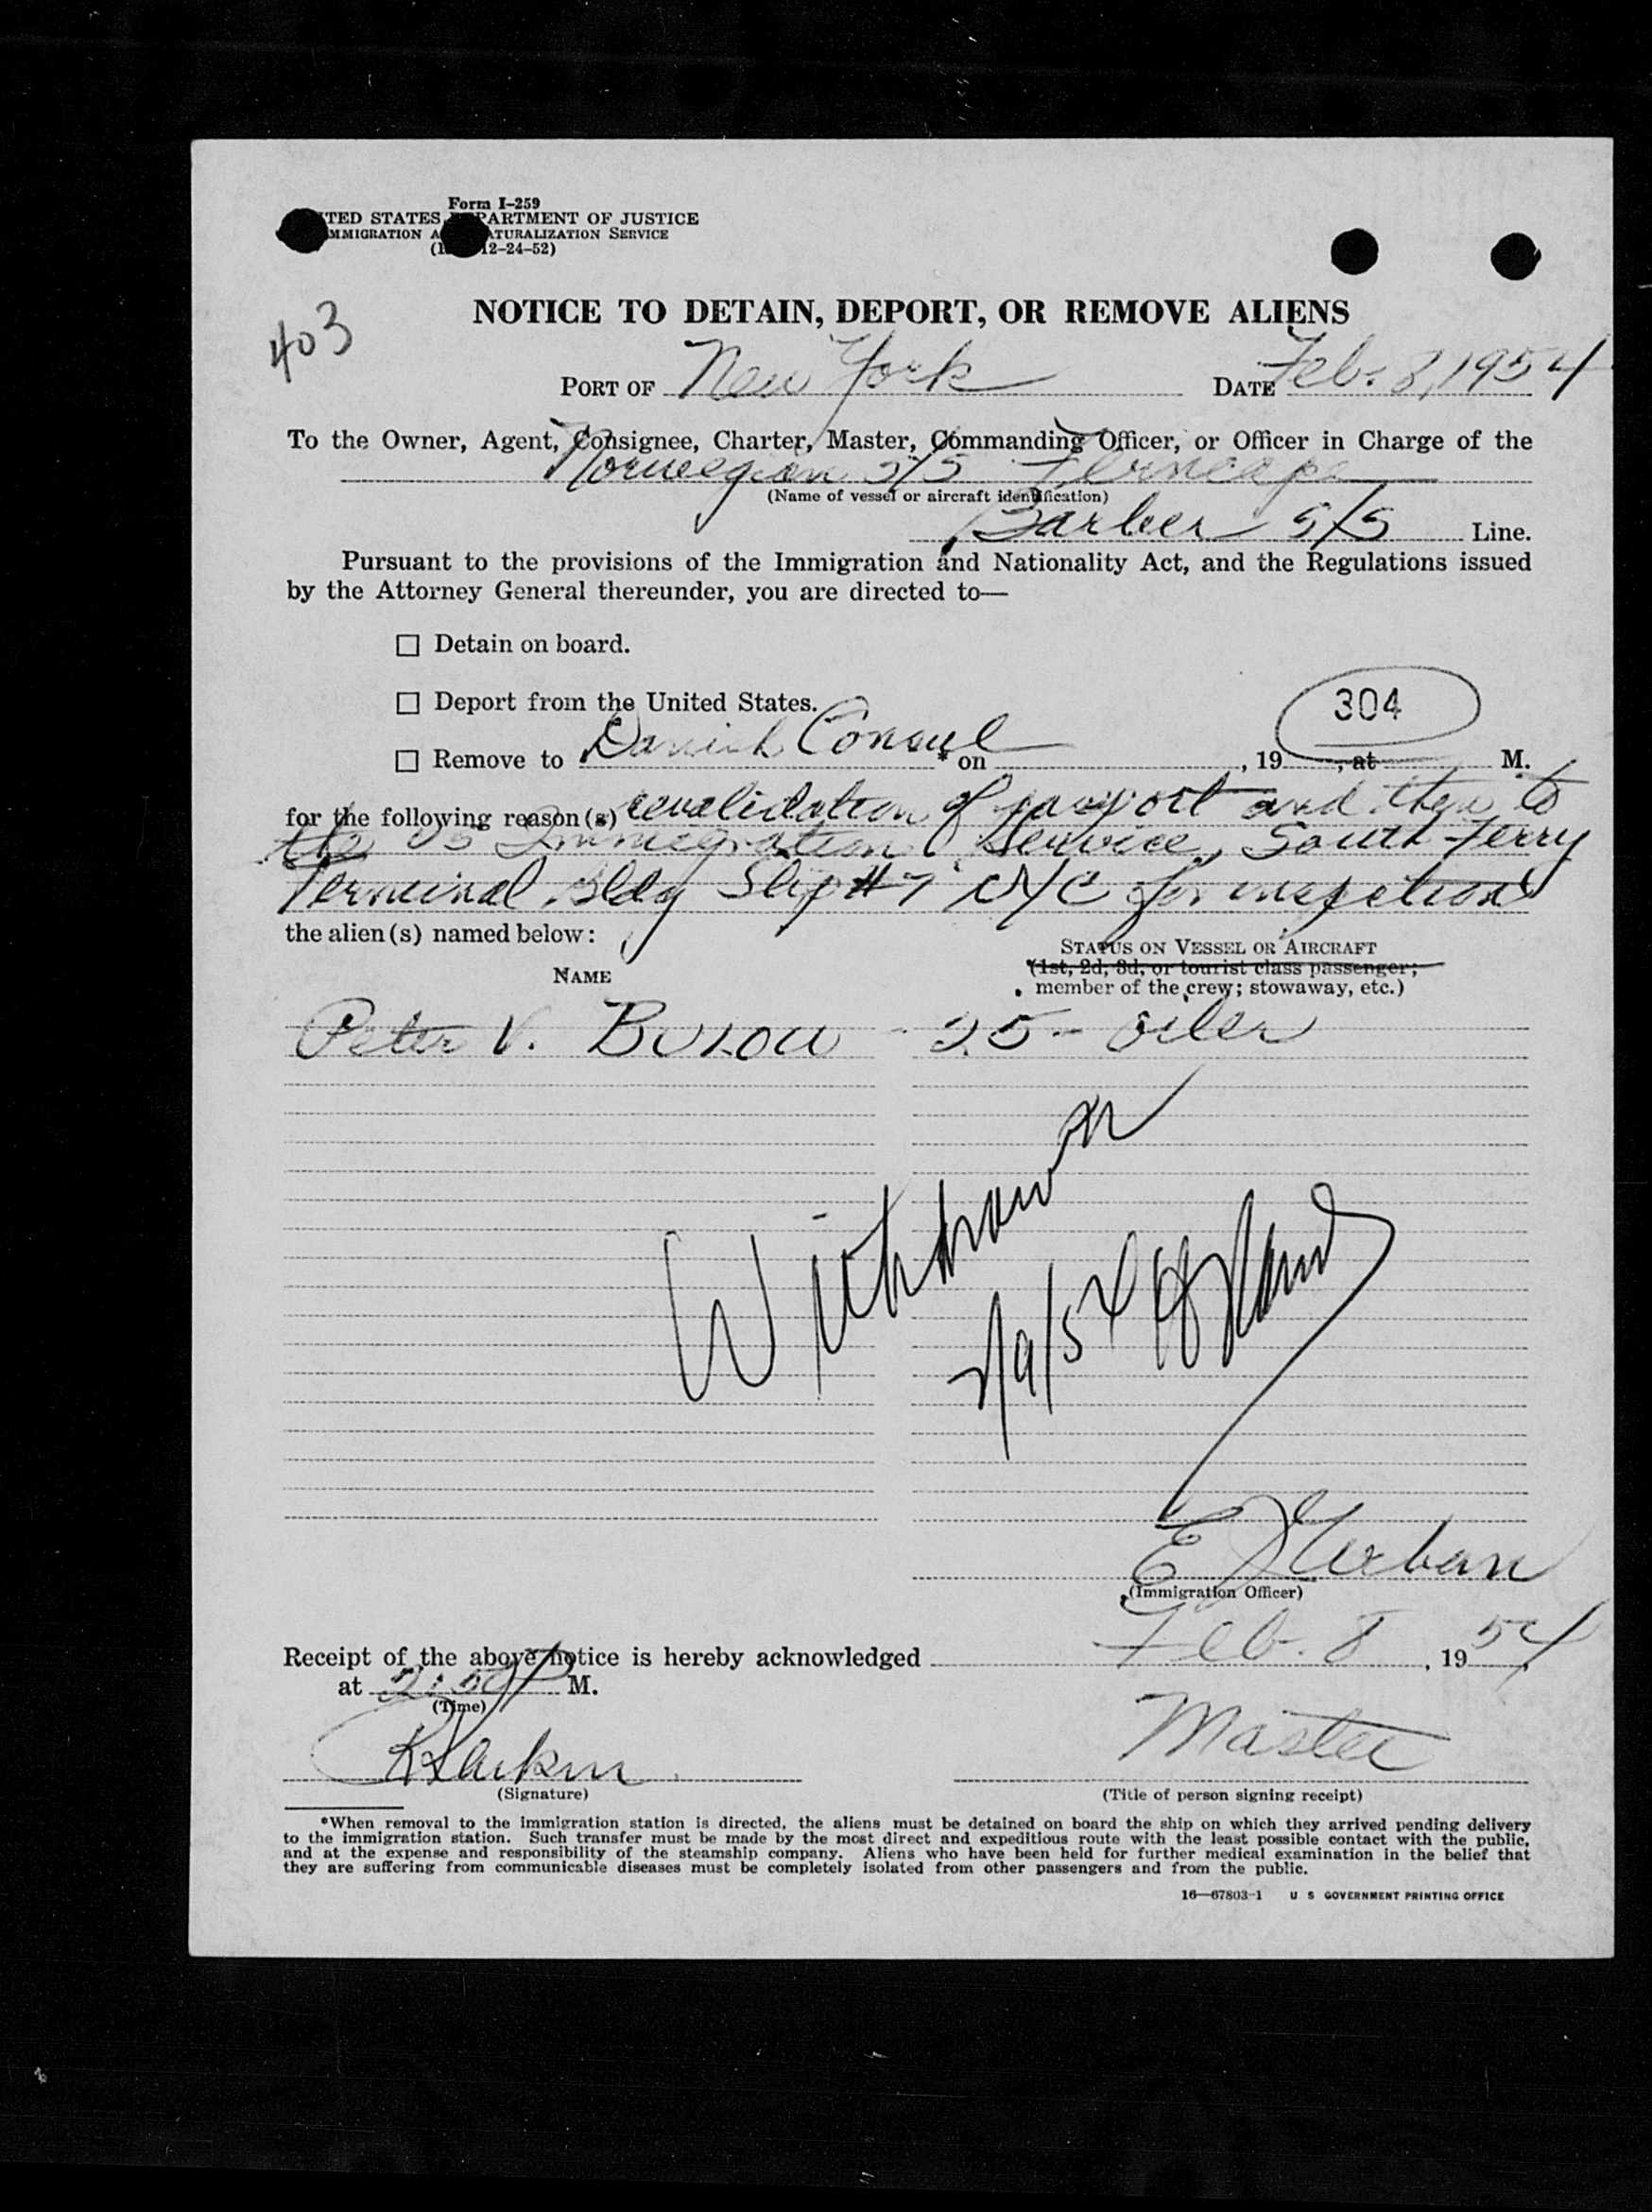 Form I-259
TED STATES PARTMENT OF JUSTICE
MMIGRATION A ATURALIZATION SERVICE
12-24-52)
403
NOTICE TO DETAIN, DEPORT, OR REMOVE ALIENS
PORT OF New York DATE Feb. 8, 1954
To the Owner, Agent, Consignee, Charter, Master, Commanding Officer, or Officer in Charge of the
Norwegian S/S Ferncape
(Name of vessel or aircraft identification)
Barber S/S Line.
Pursuant to the provisions of the Immigration and Nationality Act, and the Regulations issued
by the Attorney General thereunder, you are directed to—
☐ Detain on board.
☐ Deport from the United States.
304
☐ Remove to Danish Consul * on , 19 , at M.
for the following reason(s) revalidation of passport and then to
the US Immigration Service, South Ferry
Terminal Bldg Slip #7 NYC for inspection
the alien(s) named below:
STATUS ON VESSEL OR AIRCRAFT
(1st, 2d, 3d, or tourist class passenger;
member of the crew; stowaway, etc.)
NAME
Peter V. 25 - oiler
Withdrawn
2/9/54
E Urban
(Immigration Officer)
Receipt of the above notice is hereby acknowledged Feb. 8, 1954,
at 2:50 P M.
(Time)
Master
(Signature) (Title of person signing receipt)
*When removal to the immigration station is directed, the aliens must be detained on board the ship on which they arrived pending delivery
to the immigration station. Such transfer must be made by the most direct and expeditious route with the least possible contact with the public,
and at the expense and responsibility of the steamship company. Aliens who have been held for further medical examination in the belief that
they are suffering from communicable diseases must be completely isolated from other passengers and from the public.
16—67803-1 U S GOVERNMENT PRINTING OFFICE